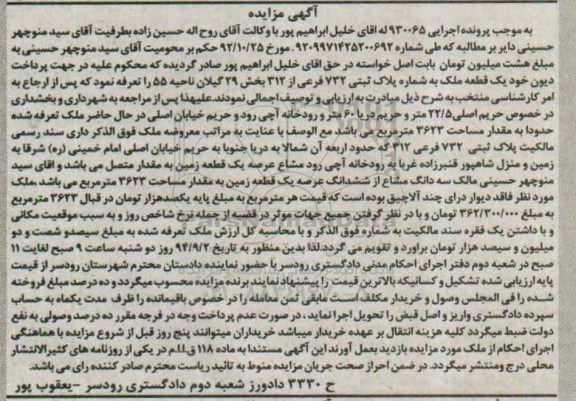 آگهی مزایده
به موجب پرونده اجرایی ۹۳۰۰۶۵ له اقای خلیل ابراهیم پور با وکالت آقای روح اله حسین زاده بطرفیت آقای سید منوچهر
حسینی دایر بر مطالبه که طی شماره ۹۲۰۹۹۷۱۴۲۵۲۰۰۶۹۲ مورخ ۹۲/۱۰/۲۵ حکم بر محومیت آقای سید منوچهر حسینی به
مبلغ هشت میلیون تومان بابت اصل خواسته در حق اقای خلیل ابراهیم پور صادر گردیده که محکوم علیه در جهت پرداخت
دیون خود یک قطعه ملک به شماره پلاک ثبتی ۷۳۲ فرعی از ۳۱۲ بخش ۲۹ گیلان ناحیه ۵۵ را تعرفه نمود که پس از ارجاع به
امر کارشناسی منتخب به شرح ذیل مبادرت به ارزیابی و توصیف اجمالی نمودند.علیهذا پس از مراجعه به شهرداری و بخشداری
در خصوص حریم اصلی ۲۲/۵ متر و حریم دریا ۶۰ متر و رودخانه آچی رود و حریم خیابان اصلی در حال حاضر ملک تعرفه شده
حدودا به مقدار مساحت ۳۶۲۳ مترمربع می باشد مع الوصف با عنایت به مراتب معروضه ملک فوق الذکر داری سند رسمی
مالکیت پلاک ثبتی ۷۳۲ فرعی ۳۱۲ که حدود اربعه آن شمالا به دریا جنوبا به حریم خیابان اصلی امام خمینی (ره) شرقا به
زمین و منزل شاهپور قنبرزاده غربا به رودخانه آچی رود مشاع عرصه یک قطعه زمین به مقدار متصل می باشد و اقای سید
منوچهر حسینی مالک سه دانگ مشاع از ششدانگ عرصه یک قطعه زمین به مقدار مساحت ۳۶۲۳ مترمربع می باشد .ملک
مورد نظر فاقد دیوار درای چند آلاچیق بوده است که قیمت هر مترمربع به مبلغ پایه یکصدهزار تومان در قبال ۳۶۲۳ مترمربع
به مبلغ ۳۶۲/۳۰۰/۰۰۰ تومان و با در نظر گرفتن جمیع جهات موثر در قضیه از جمله نرخ شاخص روز و به سبب موقعیت مکانی
و با داشتن یک فقره سند مالکیت به شماره فوق الذکر و با محاسبه کل ارزش ملک تعرفه شده به مبلغ سیصدو شصت و دو
میلیون و سیصد هزار تومان براورد و تقویم می گردد لذا بدین منظور به تاریخ ۹۴/۹/۲ روز دو شنبه ساعت ۹ صبح لغایت ۱۱
صبح در شعبه دوم دفتر اجرای احکام مدنی دادگستری رودسر با حضور نماینده دادستان محترم شهرستان رودسر از قیمت
پایه ارزیابی شده تشکیل و کسانیکه بالاترین قیمت را پیشنهاد نمایند برنده مزایده محسوب میگردد و ده درصد مبلغ فروخته
شده را فی المجلس وصول و خریدار مکلف است مابقی ثمن معامله را در خصوص باقیمانده را ظرف مدت یکماه به حساب
سپرده دادگستری واریز و اصل قبض را تحویل اجرا نماید ، در صورت عدم پرداخت وجه در فرجه مقرر ده درصد وصولی به نفع
دولت ضبط میگردد کلیه هزینه انتقال بر عهده خریدار میباشد خریداران میتوانند پنج روز قبل از شروع مزایده با هماهنگی
اجرای احکام از ملک مورد مزایده بازدید بعمل آورند این آگهی مستندا به ماده ۱۱۸ ق.ا.ا.م در یکی از روزنامه های کثیرالانتشار
محلی درج ومنتشر میگردد. در ضمن احراز صحت جریان مزایده منوط به تائید ریاست محترم صادر کننده رای می باشد.
ح ۳۳۳۰ دادورز شعبه دوم دادگستری رودسر -یعقوب پور